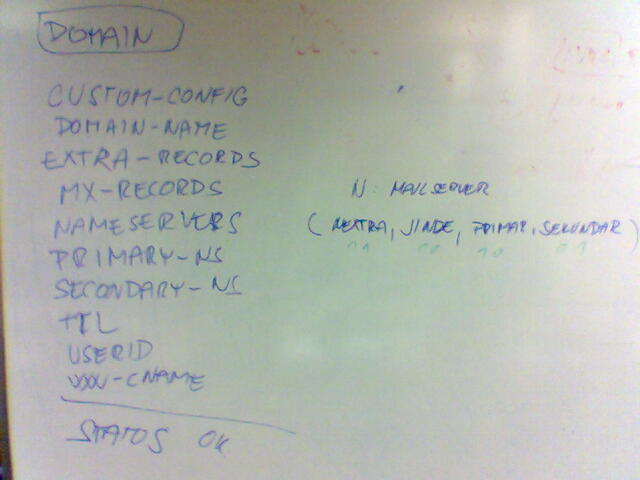 DOMAIN
CUSTOM-CONFIG
DOMAIN-NAME
EXTRA-RECORDS
MX-RECORDS N: MAILSERVER
NAMESERVERS (NEXTRA, JINDE, PRIMAR, SEKUNDAR)
11 00 10 01
PRIMARY-NS
SECONDARY-NS
TTL
USERID
WWW-CNAME
STATUS OK